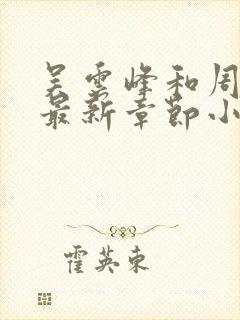 吴雪峰和周
最新章节小
霍英东